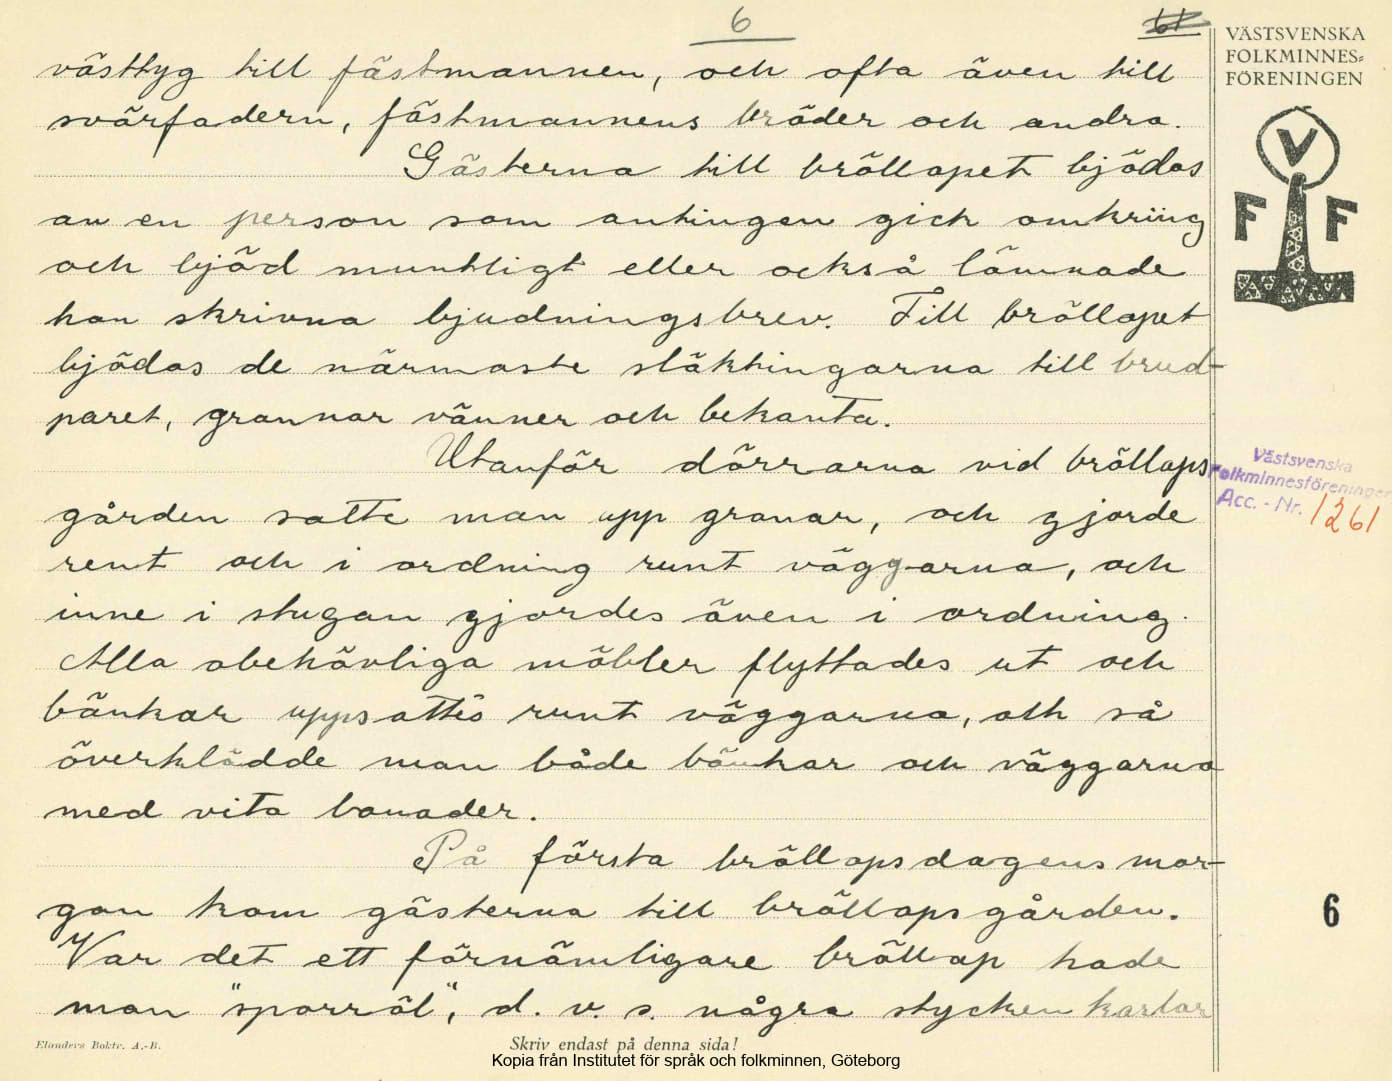 6
61
VÄSTSVENSKA
FOLKMINNES=
FÖRENINGEN
V
F F
västtyg till fästmannen, och ofta även till
svärfadern, fästmannens bröder och andra.
Gästerna till bröllopet bjödos
av en person som antingen gick omkriing
och bjöd muntligt eller också lämnade
han skrivna bjudningsbrev. Till bröllopet
bjödos de närmaste släktingarna till brud-
paret, grannar vänner och bekanta.
Utanför dörrarna vid bröllops
gården satte man upp granar, och gjorde
rent och i ordning runt väggarna, och
inne i stugan gjordes även i ordning.
Alla obehövliga möbler flyttades ut och
bänkar uppsattes runt väggarna, och så
överklädde man både bänkar och väggarna
med vita bonader.
På första bröllopsdagens mor-
gon kom gästerna till bröllopsgården.
Var det ett förnämligare bröllop hade
man "sporröl", d. v. s. några stycken karlar
Västsvenska
Folkminnesföreningen
Acc. - Nr. 1261
6
Elanders Boktr. A.-B.
Skriv endast på denna sida!
Kopia från Institutet för språk och folkminnen, Göteborg